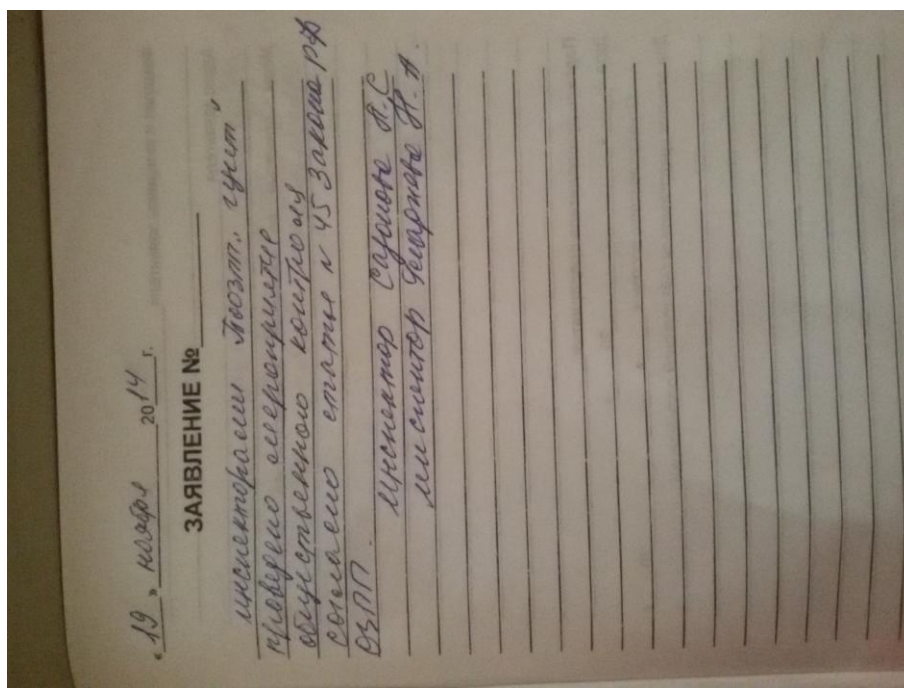 « 19 » ноября 2014 г.
ЗАЯВЛЕНИЕ №
инспекторами
проведено мероприятие
общественного контроля
согласно статье N 45 Закона РФ
ОЗПП.
инспектор Сазонова А. С
инспектор Н. А.